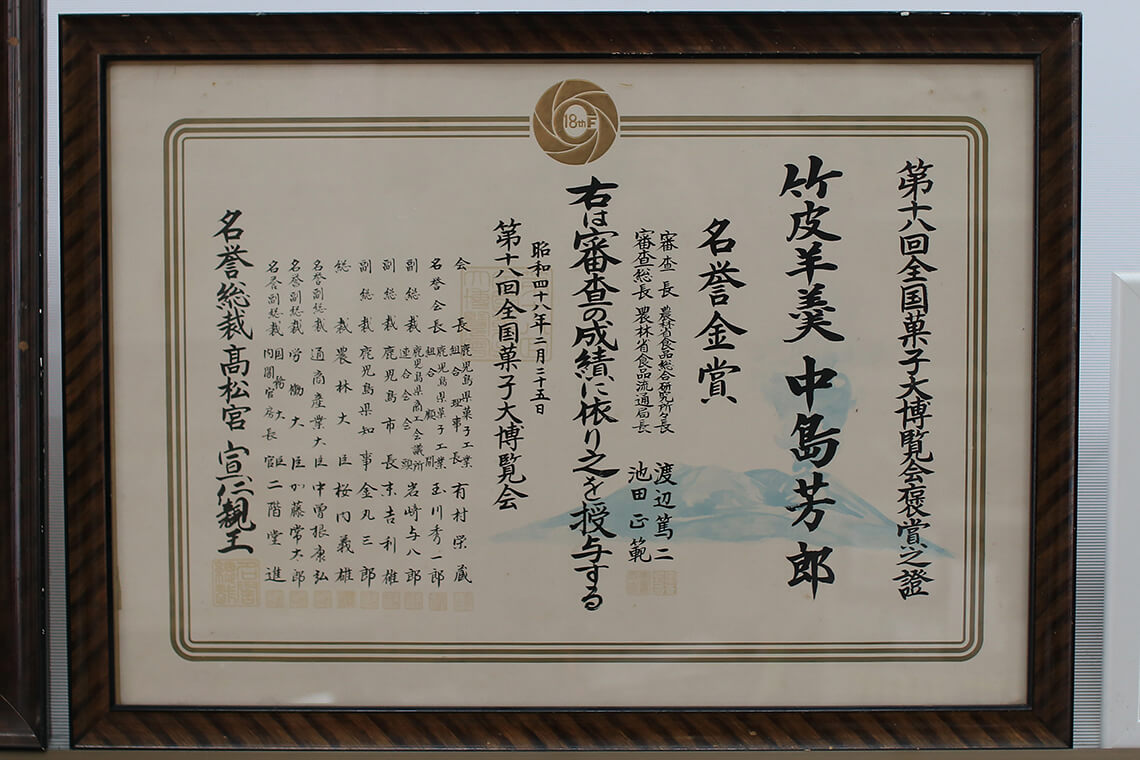 18th
第十八回全国菓子大博覧会褒賞之證
竹皮羊羹 中島芳郎
名誉金賞
審査長 農林省食品総合研究所々長 渡辺篤二
審査総長 農林省食品流通局長 池田正範
右は審査の成績に依り之を授与する
昭和四十八年二月二十五日
第十八回全国菓子大博覧会
会長 鹿児島県菓子工業組合理事長 有村栄蔵
名誉会長 鹿児島県菓子工業組合顧問 玉川秀一郎
副総裁 鹿児島県商工会議所連合会会頭 岩崎与八郎
副総裁 鹿児島市長 末吉利雄
副総裁 鹿児島県知事 金丸三郎
総裁 農林大臣 桜内義雄
名誉副総裁 通商産業大臣 中曽根康弘
名誉副総裁 労働大臣 加藤常太郎
名誉副総裁 国務大臣 内閣官房長官 二階堂進
名誉総裁 高松宮 宣仁親王